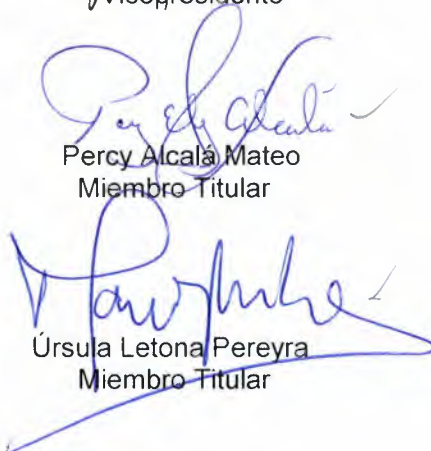 Vicepresidente
Percy Alcalá Mateo
Miembro Titular
Úrsula Letona Pereyra
Miembro Titular